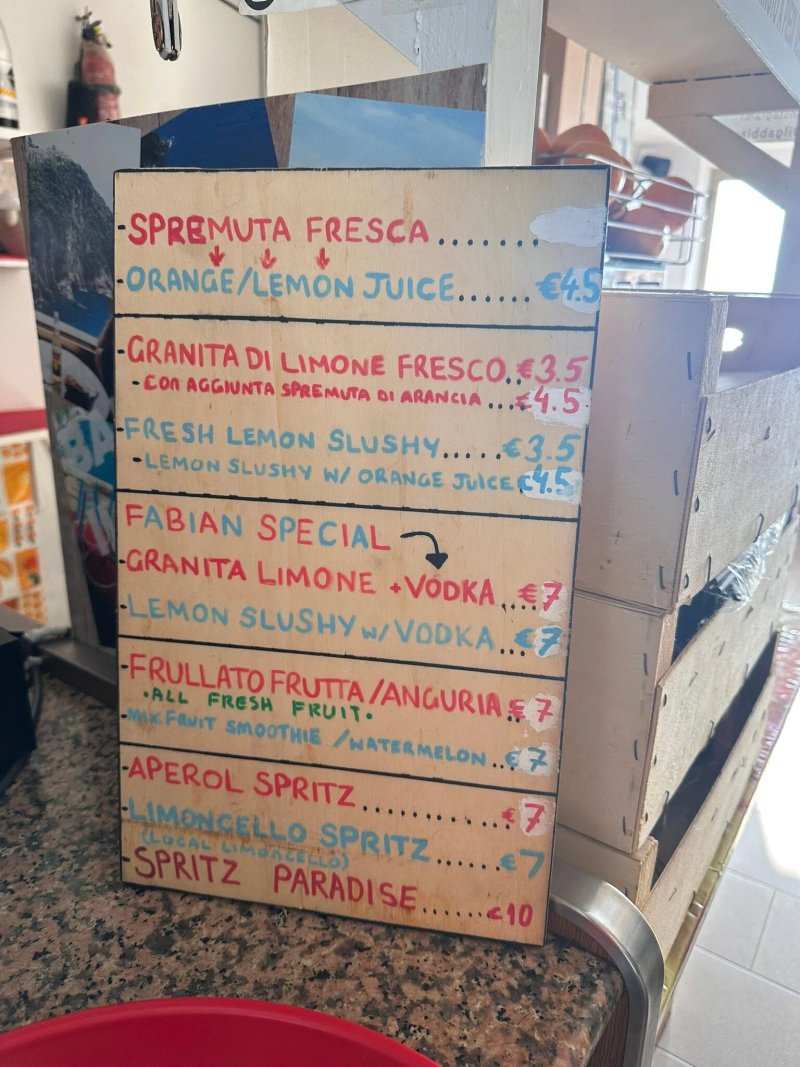 -SPREMUTA FRESCA.......
-ORANGE/LEMON JUICE......€4.5
-GRANITA DI LIMONE FRESCO..€3.5
-CON AGGIUNTA SPREMUTA DI ARANCIA...€4.5
-FRESH LEMON SLUSHY.....€3.5
-LEMON SLUSHY W/ ORANGE JUICE €4.5
FABIAN SPECIAL
-GRANITA LIMONE +VODKA....€7
-LEMON SLUSHY W/ VODKA...€7
-FRULLATO FRUTTA/ANGURIA..€7
•ALL FRESH FRUIT•
-MIX FRUIT SMOOTHIE /WATERMELON..€7
-APEROL SPRITZ...........€7
-LIMONCELLO SPRITZ......€7
(LOCAL LIMONCELLO)
-SPRITZ PARADISE.......€10